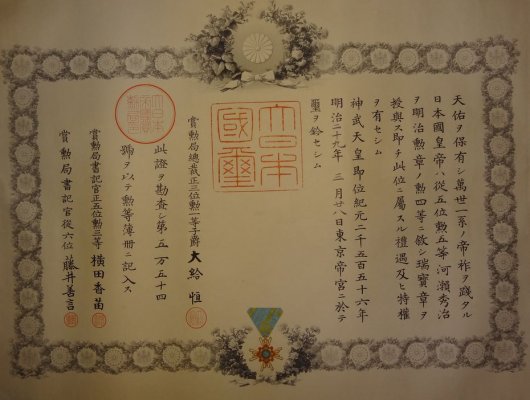 天佑ヲ保有シ萬世一系ノ帝祚ヲ踐タル
日本國皇帝ハ從五位勲五等河瀨秀治
ヲ明治勲章ノ勲四等ニ敍シ瑞寶章ヲ
授與ス即チ此位ニ屬スル禮遇及ヒ特權
ヲ有セシム
神武天皇即位紀元二千五百五十六年
明治二十九年三月廿八日東京帝宮ニ於テ
璽ヲ鈐セシム
大日本
國璽
賞勲局總裁正三位勲一等子爵大給恒
此證ヲ勘査シ第五万五十四
號ヲ以テ勲等簿册ニ記入ス
賞勲局書記官正五位勲三等横田香苗
賞勲局書記官從六位藤井善言